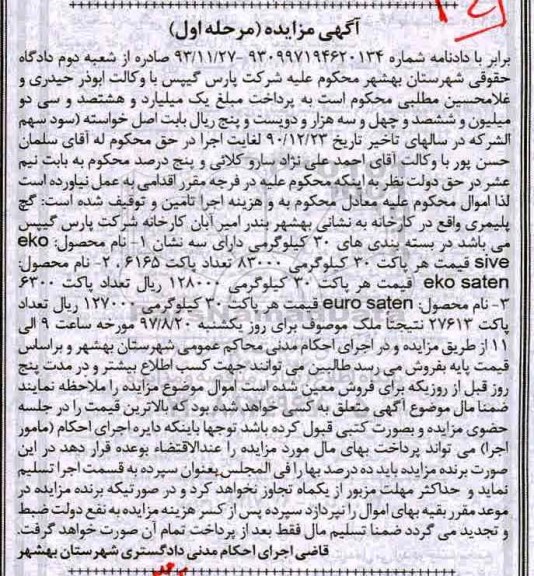 آگهی مزایده (مرحله اول)
برابر با دادنامه شماره ۹۳۰۹۹۷۱۹۴۶۲۰۱۳۴ -۹۳/۱۱/۲۷ صادره از شعبه دوم دادگاه
حقوقی شهرستان بهشهر محکوم علیه شرکت پارس گیپس با وکالت ابوذر حیدری و
غلامحسین مطلبی محکوم است به پرداخت مبلغ یک میلیارد و هشتصد و سی دو
میلیون و ششصد و چهل و سه هزار و دویست و پنج ریال بابت اصل خواسته (سود سهم
الشرکه در سالهای تاخیر تاریخ ۹۰/۱۲/۲۳ لغایت اجرا در حق محکوم له آقای سلمان
حسن پور با وکالت آقای احمد علی نژاد سارو کلائی و پنج درصد محکوم به بابت نیم
عشر در حق دولت نظر به اینکه محکوم علیه در فرجه مقرر اقدامی به عمل نیاورده است
لذا اموال محکوم علیه معادل محکوم به و هزینه اجرا تامین و توقیف شده است: گچ
پلیمری واقع در کارخانه به نشانی بهشهر بندر امیر آبان کارخانه شرکت پارس گیپس
می باشد در بسته بندی های ۳۰ کیلوگرمی دارای سه نشان ۱- نام محصول: eko
sive قیمت هر پاکت ۳۰ کیلوگرمی ۸۳۰۰۰ تعداد پاکت ۶۱۶۵ . ۲- نام محصول:
eko saten قیمت هر پاکت ۳۰ کیلوگرمی ۱۲۸۰۰۰ ریال تعداد پاکت ۶۳۰۰
۳- نام محصول: euro saten قیمت هر پاکت ۳۰ کیلوگرمی ۱۲۷۰۰۰ ریال تعداد
پاکت ۲۷۶۱۳ نتیجتاً ملک موصوف برای روز یکشنبه ۹۷/۸/۲۰ مورخه ساعت ۹ الی
۱۱ از طریق مزایده و در اجرای احکام مدنی محاکم عمومی شهرستان بهشهر و براساس
قیمت پایه بفروش می رسد طالبین می توانند جهت کسب اطلاع بیشتر و در مدت پنج
روز قبل از روزیکه برای فروش معین شده است اموال موضوع مزایده را ملاحظه نمایند
ضمنا مال موضوع آگهی متعلق به کسی خواهد شده بود که بالاترین قیمت را در جلسه
حضوی مزایده و بصورت کتبی قبول کرده باشد توجها باینکه دایره اجرای احکام (مامور
اجرا) می تواند پرداخت بهای مال مورد مزایده را عندالاقتضاء بوعده قرار دهد در این
صورت برنده مزایده باید ده درصد بها را فی المجلس بعنوان سپرده به قسمت اجرا تسلیم
نماید و حداکثر مهلت مزبور از یکماه تجاوز نخواهد کرد و در صورتیکه برنده مزایده در
موعد مقرر بقیه بهای اموال را نپردازد سپرده پس از کسر هزینه مزایده به نفع دولت ضبط
و تجدید می گردد ضمنا تسلیم مال فقط بعد از پرداخت تمام آن صورت خواهد گرفت.
قاضی اجرای احکام مدنی دادگستری شهرستان بهشهر